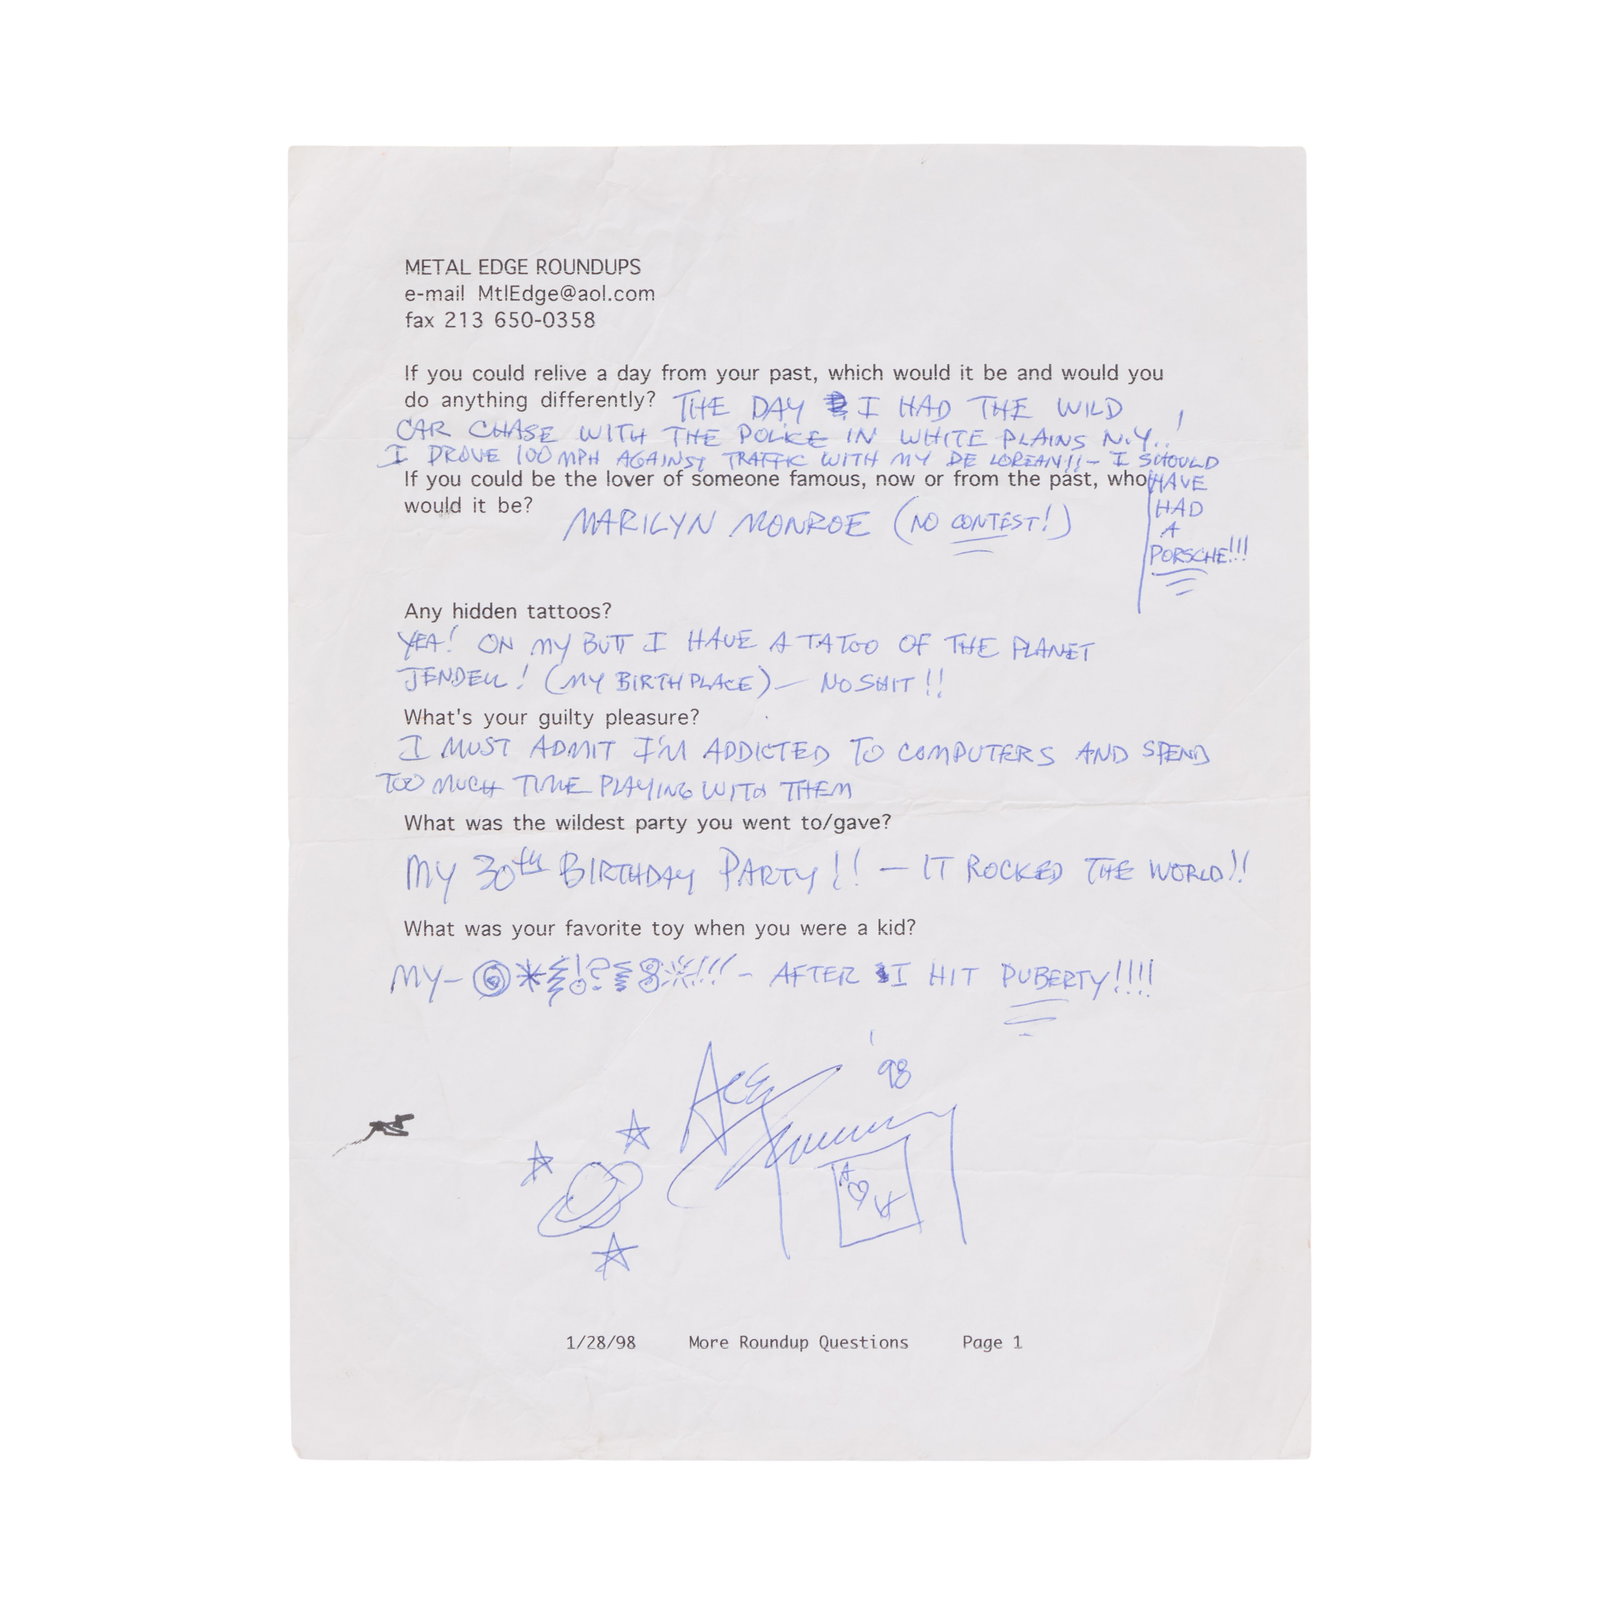 METAL EDGE ROUNDUPS
e-mail MtlEdge@aol.com
fax 213 650-0358
If you could relive a day from your past, which would it be and would you
do anything differently? THE DAY I HAD THE WILD
CAR CHASE WITH THE POLICE IN WHITE PLAINS N.Y..!
I DROVE 100 MPH AGAINST TRAFFIC WITH MY DE LOREAN!! - I SHOULD
HAVE
HAD
A
PORSCHE!!!
If you could be the lover of someone famous, now or from the past, who
would it be? MARILYN MONROE (NO CONTEST!)
Any hidden tattoos?
YEA! ON MY BUTT I HAVE A TATOO OF THE PLANET
JENDELL! (MY BIRTHPLACE) — NO SHIT!!
What's your guilty pleasure?
I MUST ADMIT I'M ADDICTED TO COMPUTERS AND SPEND
TOO MUCH TIME PLAYING WITH THEM
What was the wildest party you went to/gave?
MY 30th BIRTHDAY PARTY!! — IT ROCKED THE WORLD!!
What was your favorite toy when you were a kid?
MY - @*!?!!! - AFTER I HIT PUBERTY!!!!
Ace Frehley '98
A A
1/28/98 More Roundup Questions Page 1